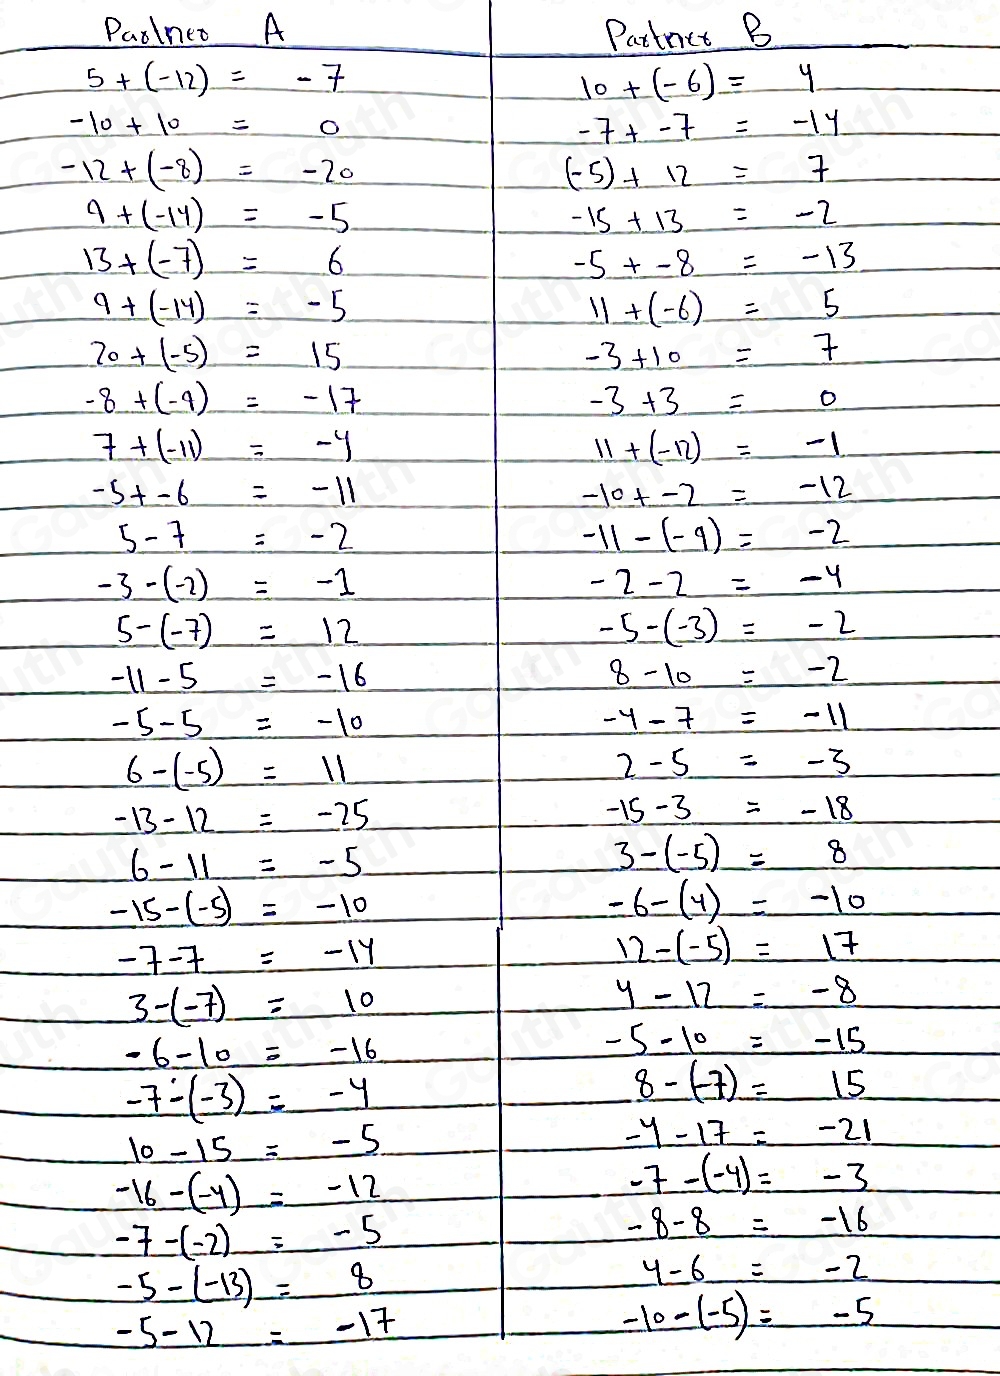 Partner A
5 + (-12) = -7
-10 + 10 = 0
-12 + (-8) = -20
9 + (-14) = -5
13 + (-7) = 6
9 + (-14) = -5
20 + (-5) = 15
-8 + (-9) = -17
7 + (-11) = -4
-5 + -6 = -11
5 - 7 = -2
-3 - (-2) = -1
5 - (-7) = 12
-11 - 5 = -16
-5 - 5 = -10
6 - (-5) = 11
-13 - 12 = -25
6 - 11 = -5
-15 - (-5) = -10
-7 - 7 = -14
3 - (-7) = 10
-6 - 10 = -16
-7 - (-3) = -4
10 - 15 = -5
-16 - (-4) = -12
-7 - (-2) = -5
-5 - (-13) = 8
-5 - 12 = -17
Partner B
10 + (-6) = 4
-7 + -7 = -14
(-5) + 12 = 7
-15 + 13 = -2
-5 + -8 = -13
11 + (-6) = 5
-3 + 10 = 7
-3 + 3 = 0
11 + (-12) = -1
-10 + -2 = -12
-11 - (-9) = -2
-2 - 2 = -4
-5 - (-3) = -2
8 - 10 = -2
-4 - 7 = -11
2 - 5 = -3
-15 - 3 = -18
3 - (-5) = 8
-6 - (4) = -10
12 - (-5) = 17
4 - 12 = -8
-5 - 10 = -15
8 - (-7) = 15
-4 - 17 = -21
-7 - (-4) = -3
-8 - 8 = -16
4 - 6 = -2
-10 - (-5) = -5